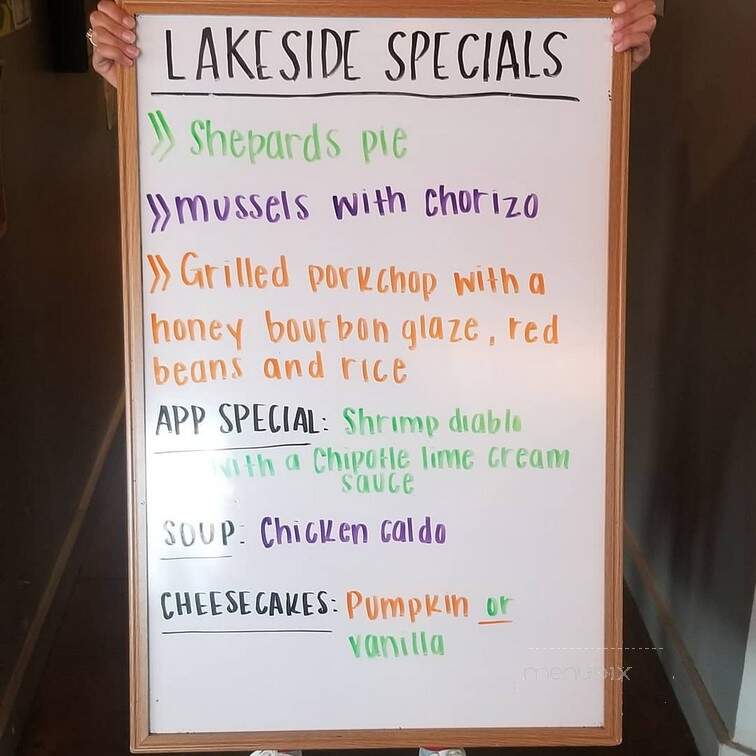 LAKESIDE SPECIALS
» Shepards pie
» mussels with chorizo
» Grilled porkchop with a
honey bourbon glaze, red
beans and rice
APP SPECIAL: Shrimp diablo
with a Chipotle lime cream
sauce
SOUP: Chicken caldo
CHEESECAKES: Pumpkin or
vanilla
menupix